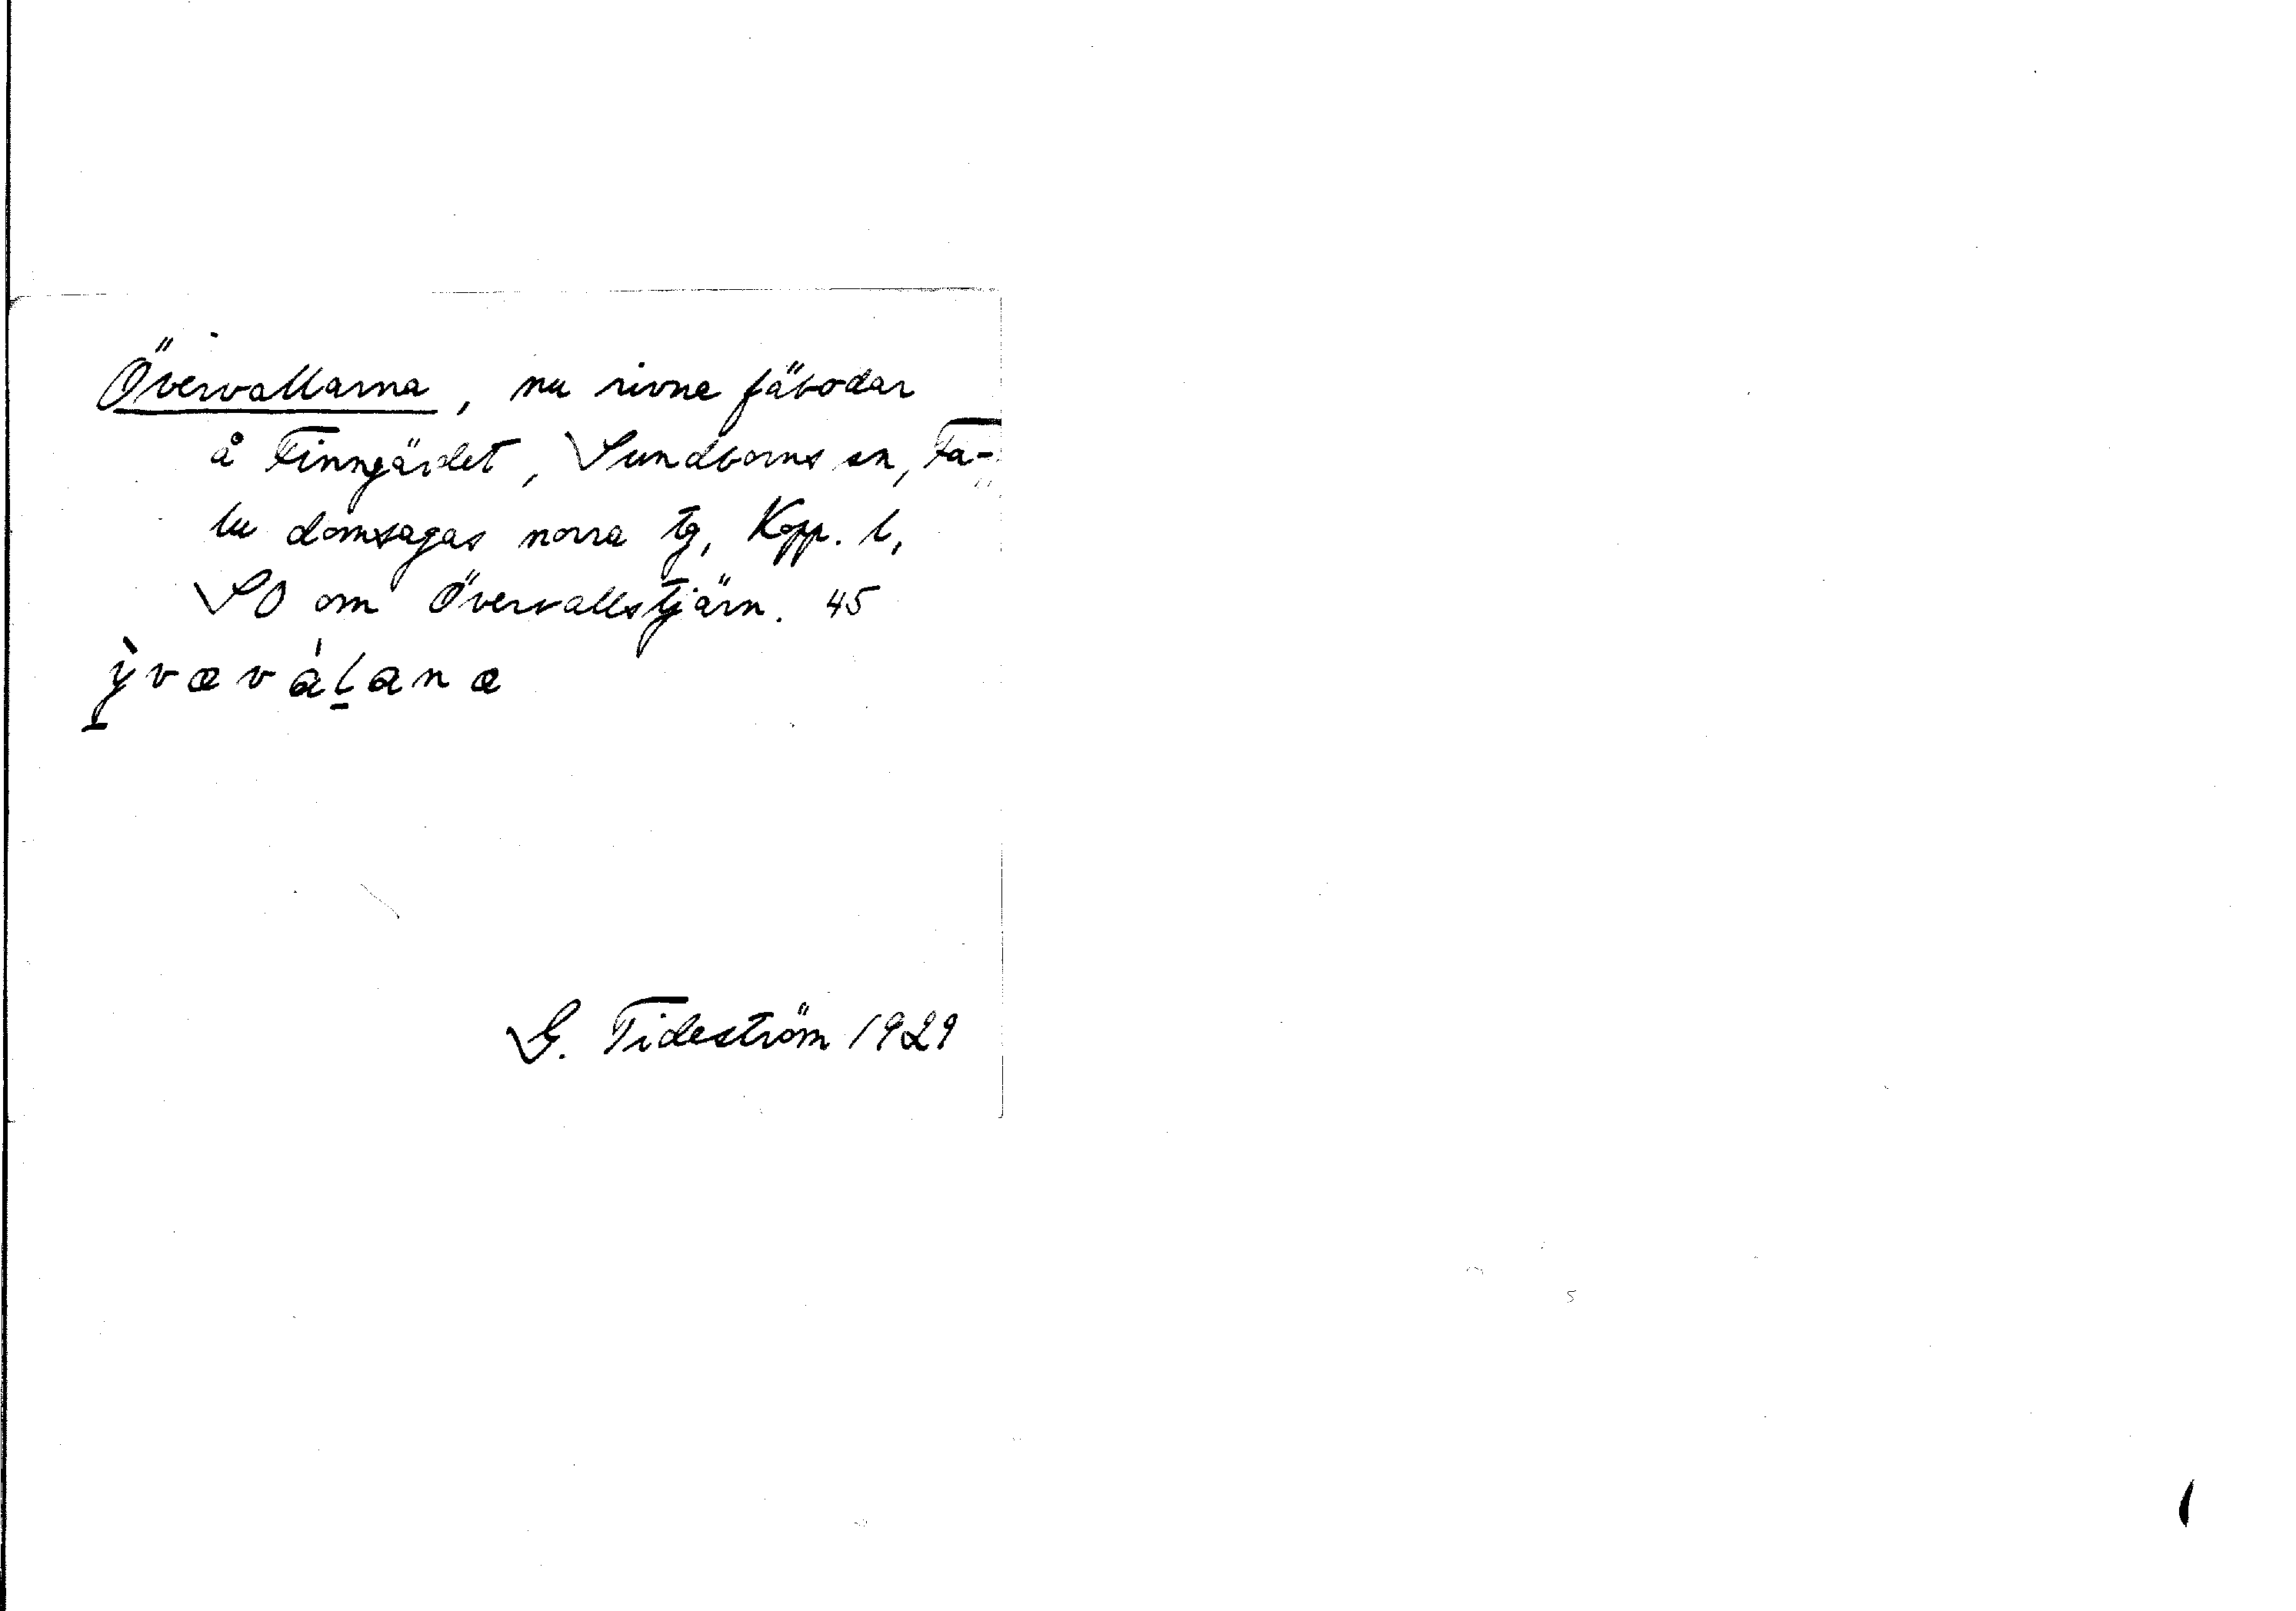 Övervallarna, nu rivna fäbodar
å Finngärdet, Sundborns sn, Fa-
lu domsagas norra tg, Kopp. l,
SO om Övervallstjärn. 45
ỳvœválana
G. Tideström 1929